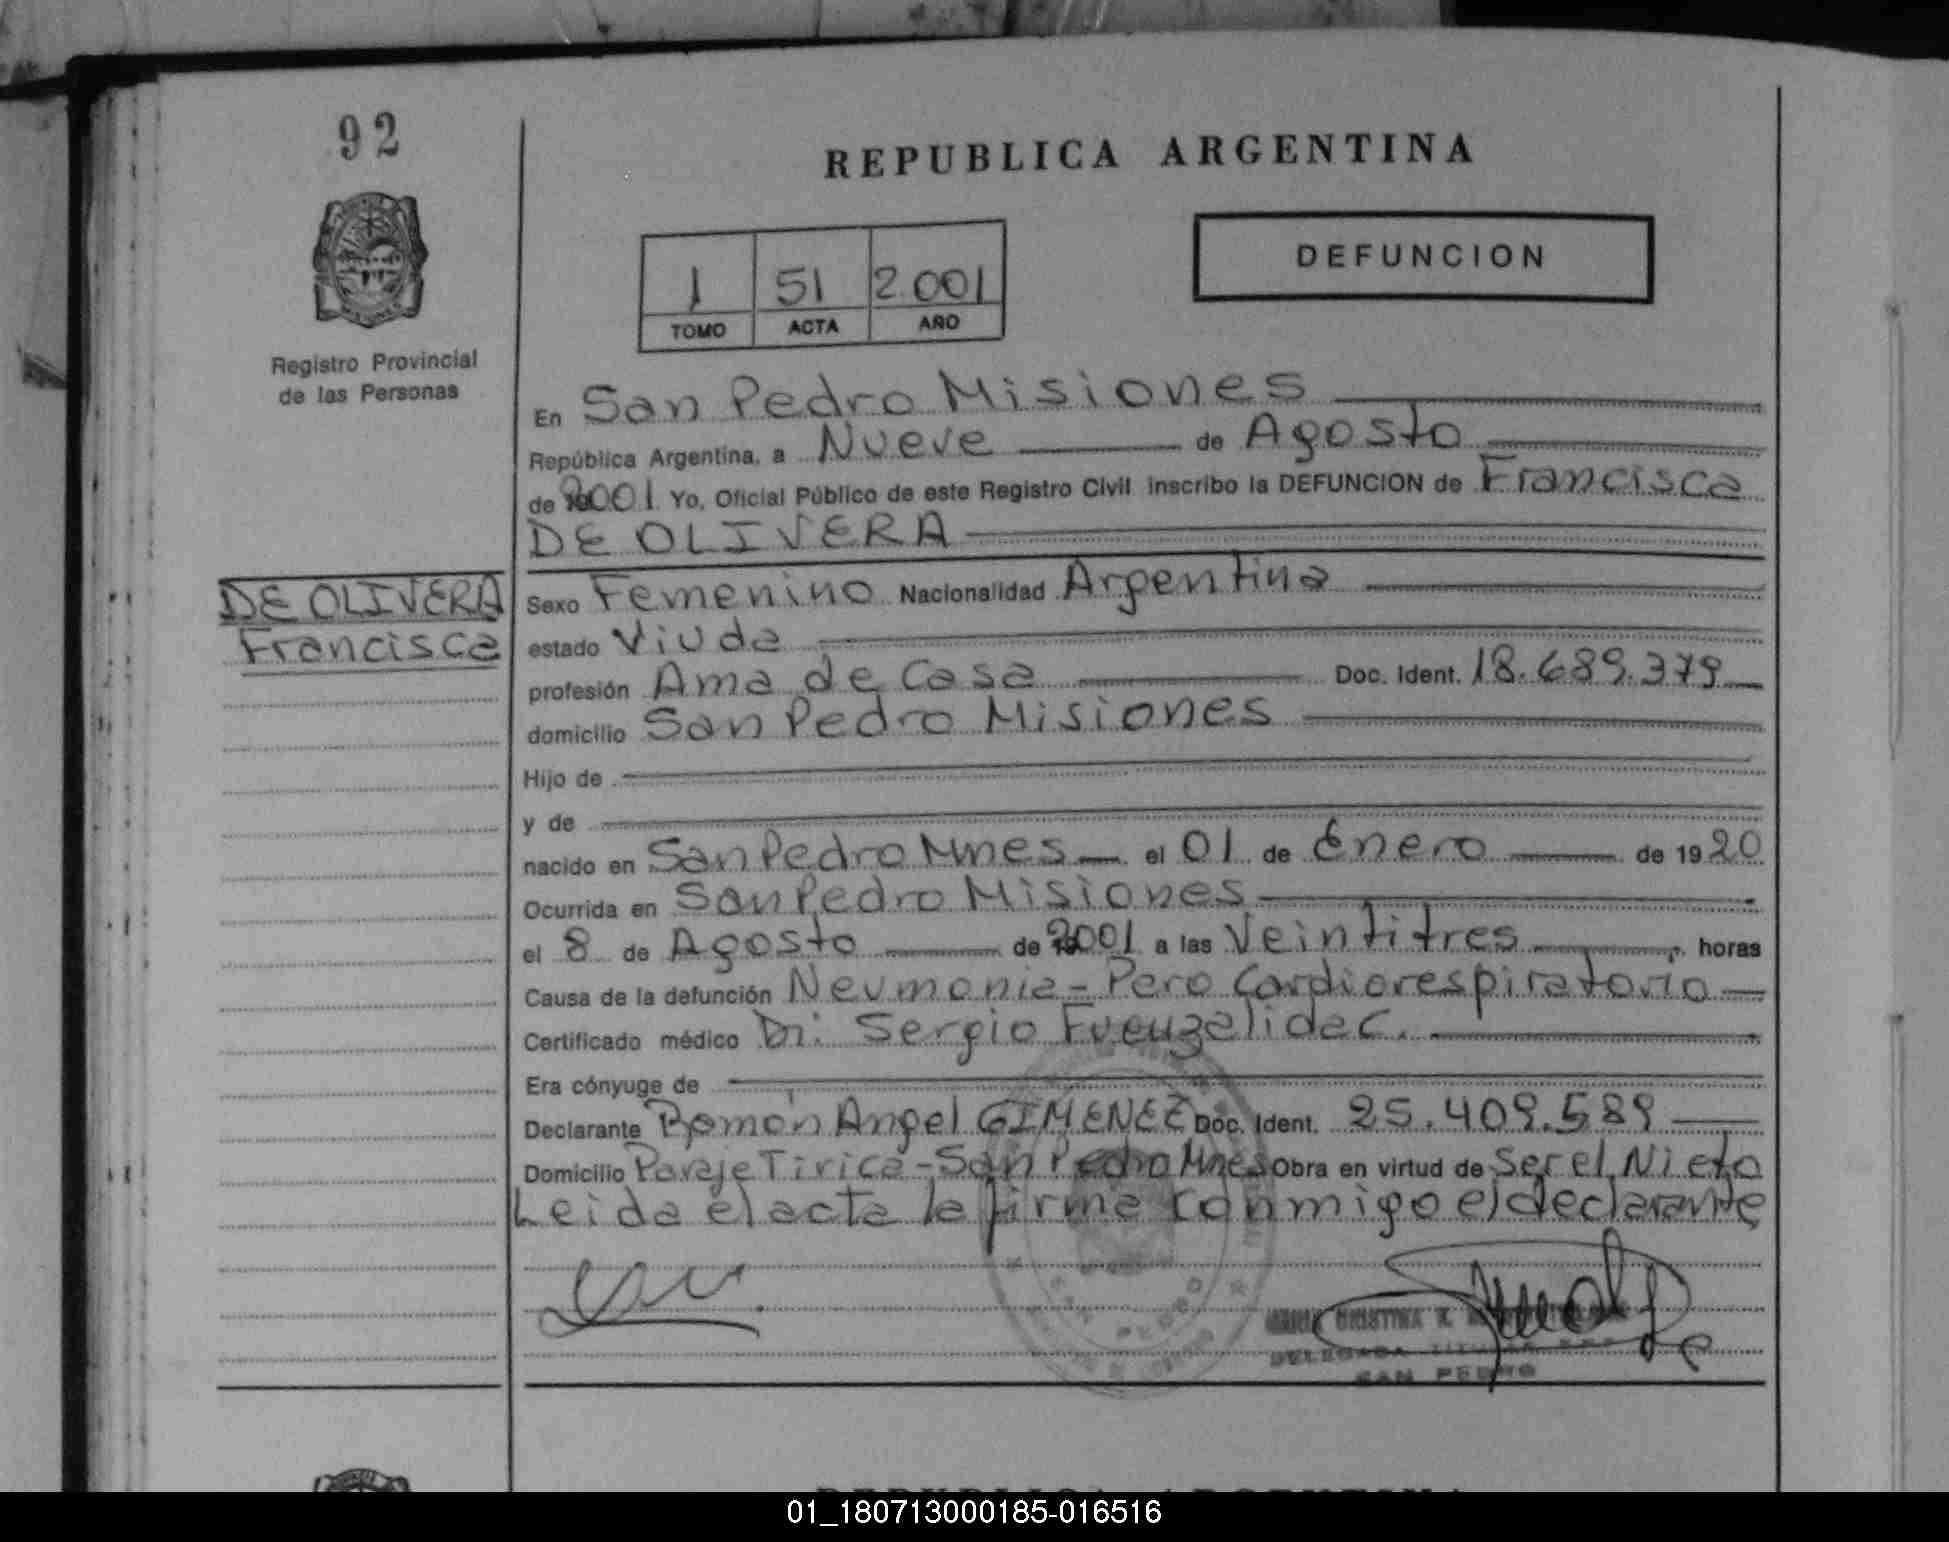 92
REPUBLICA ARGENTINA
DEFUNCION
1 51 2.001
TOMO ACTA AÑO
Registro Provincial
de las Personas
En San Pedro Misiones
República Argentina, a Nueve de Agosto
de 2001 Yo, Oficial Público de este Registro Civil inscribo la DEFUNCION de Francisca
DE OLIVERA
DE OLIVERA
Francisca
Sexo Femenino Nacionalidad Argentina
estado Viuda
profesión Ama de Casa Doc. Ident. 18.689.379
domicilio San Pedro Misiones
Hijo de
y de
nacido en San Pedro Mnes el 01 de Enero de 1920
Ocurrida en San Pedro Misiones
el 8 de Agosto de 2001 a las Veintitres horas
Causa de la defunción Neumonia - Pero Cardiorespiratorio
Certificado médico Dr: Sergio
Era cónyuge de
Declarante Ramón Angel GIMENEZ Doc. Ident. 25.409.589
Domicilio Paraje Tirica - San Pedro Mnes Obra en virtud de Ser el Nieto
Leida el acta la firma conmigo el declarante
MARIA CRISTINA
DELEGADA TITULAR
SAN PEDRO
REPUBLICA ARGENTINA
01_180713000185-016516